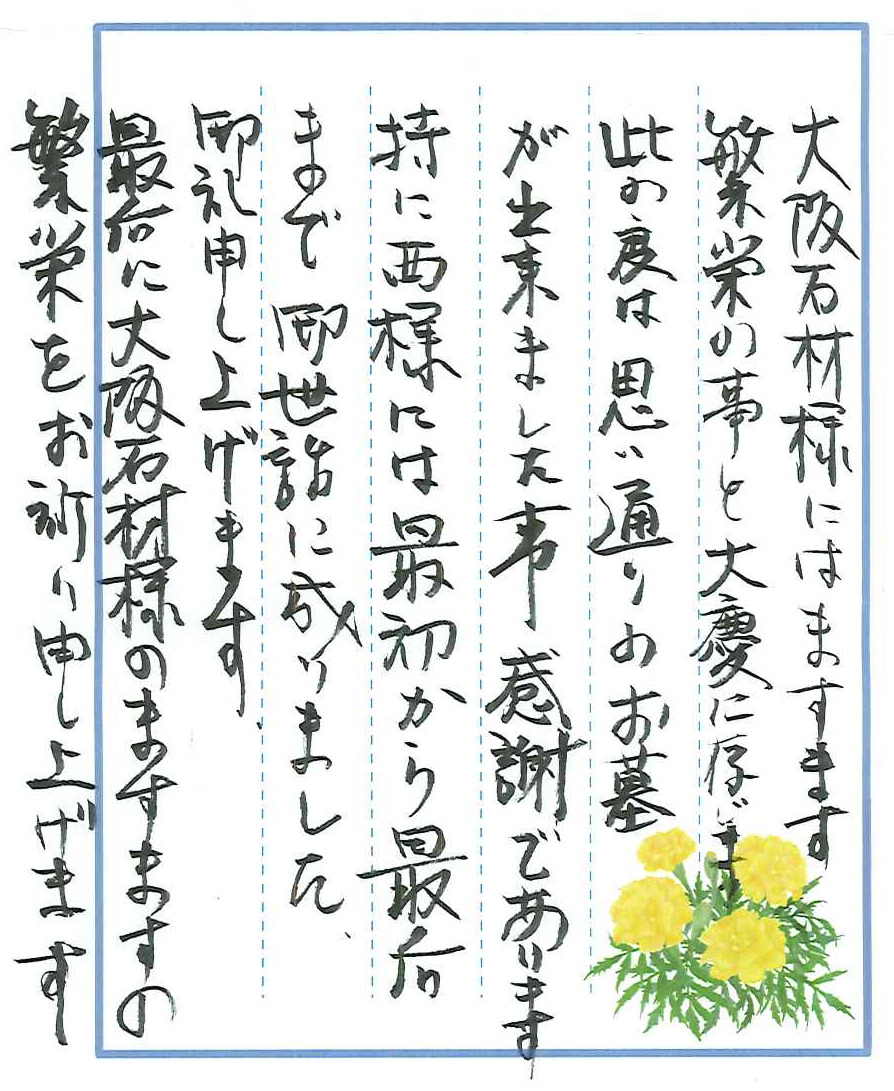 大阪石材様にはますます
繁栄の事と大慶に存じます
此の度は思い通りのお墓
が出来ました事感謝であります
持に西様には最初から最后
まで御世話に成りました、
御礼申し上げます、
最后に大阪石材様のますますの
繁栄をお祈り申し上げます